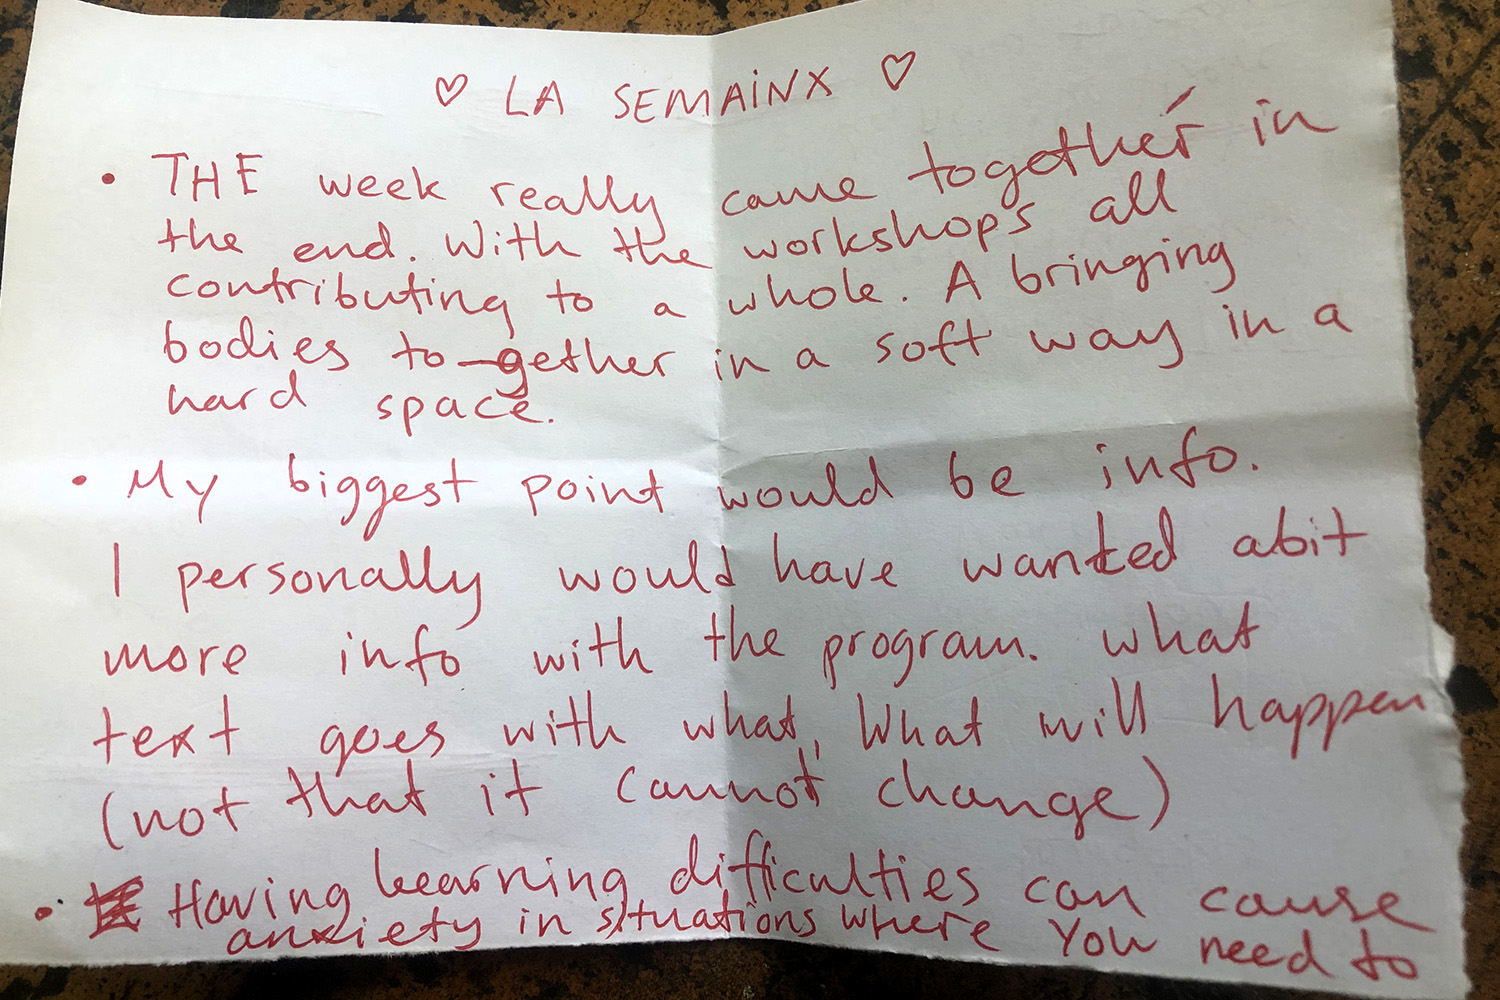 ♡ LA SEMAINX ♡
• THE week really came together in
the end. With the workshops all
contributing to a whole. A bringing
bodies to-gether in a soft way in a
hard space.
• My biggest point would be info.
I personally would have wanted abit
more info with the program. what
text goes with what, What will happen
(not that it cannot change)
• Having learning difficulties can cause
anxiety in situations where You need to